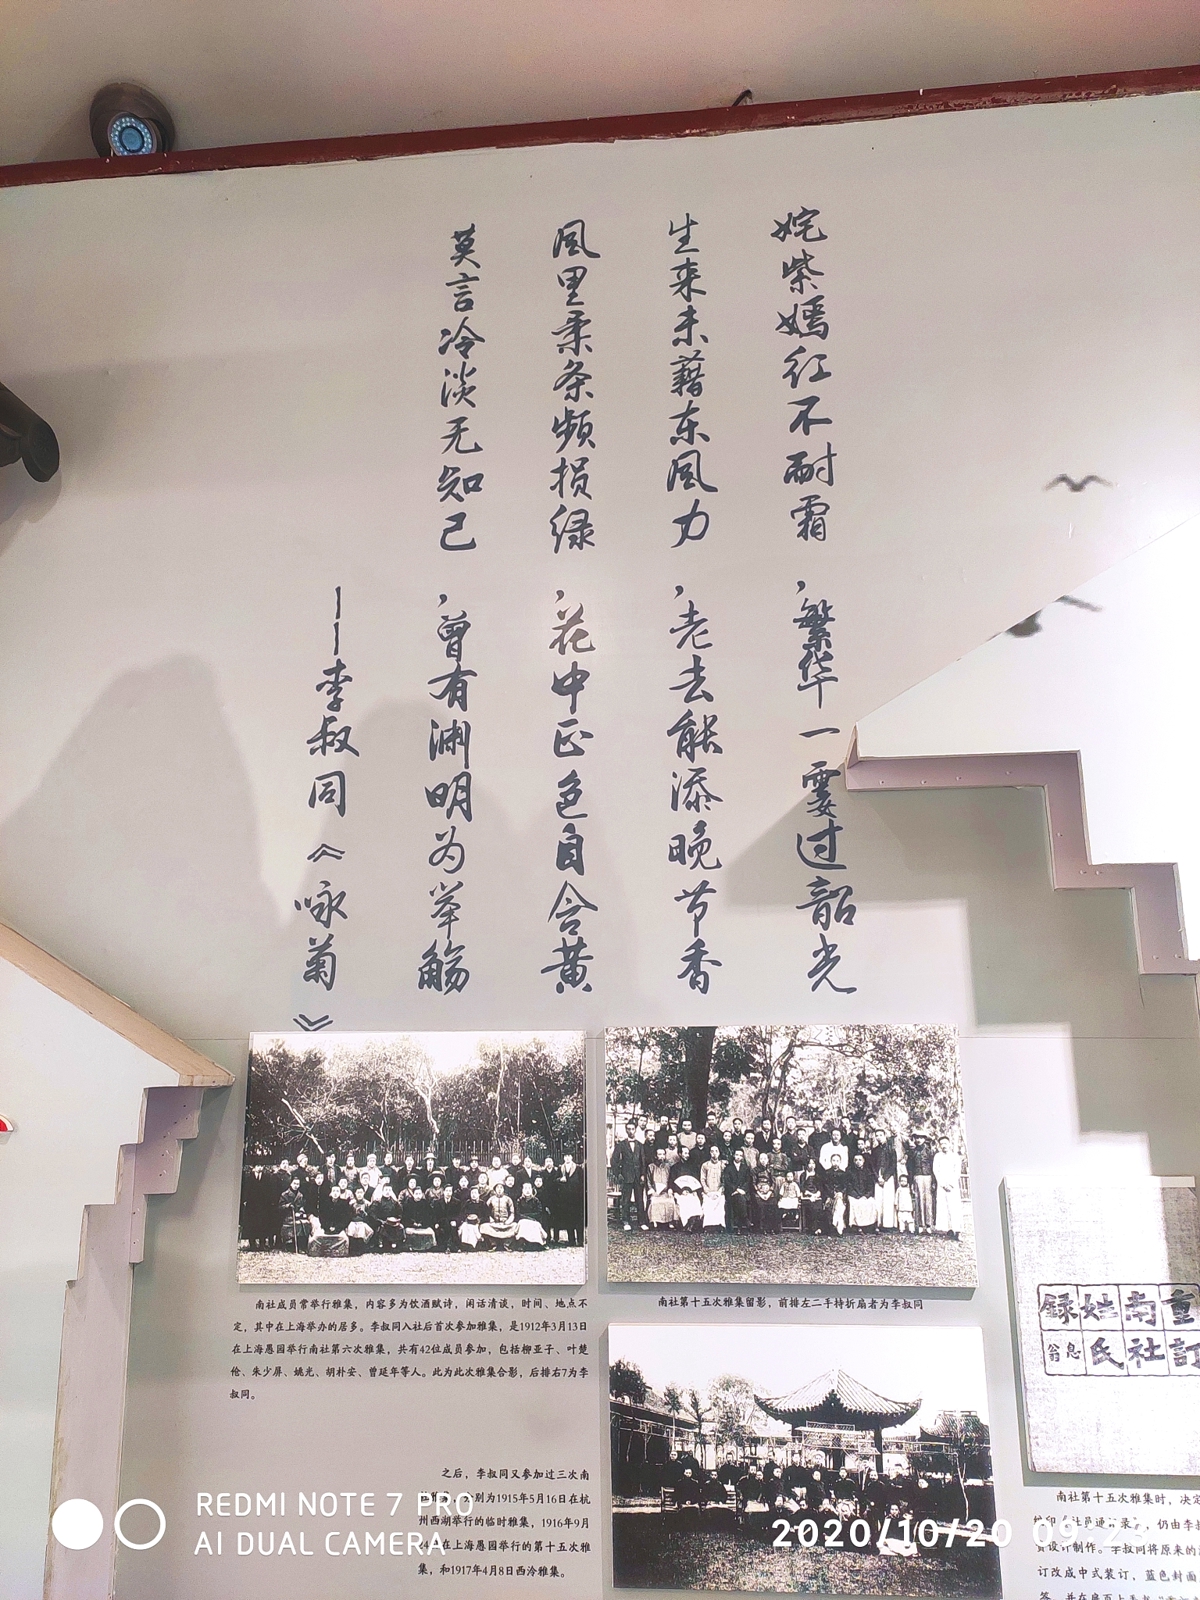 姹紫嫣红不耐霜，繁华一霎过韶光
生来未藉东风力，老去能添晚节香
风里柔条频损绿，花中正色自含黄
莫言冷淡无知己，曾有渊明为举觞
——李叔同《咏菊》
南社成员常举行雅集，内容多为饮酒赋诗，闲话清谈，时间、地点不
定，其中在上海举办的居多。李叔同入社后首次参加雅集，是1912年3月13日
在上海愚园举行南社第六次雅集，共有42位成员参加，包括柳亚子、叶楚
伧、朱少屏、姚光、胡朴安、曾延年等人。此为此次雅集合影，后排右7为李
叔同。
南社第十五次雅集留影，前排左二手持折扇者为李叔同
之后，李叔同又参加过三次南
分别为1915年5月16日在杭
州西湖举行的临时雅集，1916年9月
日在上海愚园举行的第十五次雅
集，和1917年4月8日西泠雅集。
重南姓录
订社氏
息翁
南社第十五次雅集时，决定
社员通 录 ，仍由李
设计制作。李叔同将原来的
订改成中式装订，蓝色封面
签，并在扉页上手书
REDMI NOTE 7 PRO
AI DUAL CAMERA
2020/10/20 09:23